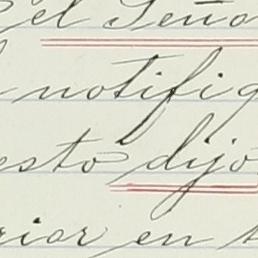 el Seño
notifiq
esto dijo
rior en t